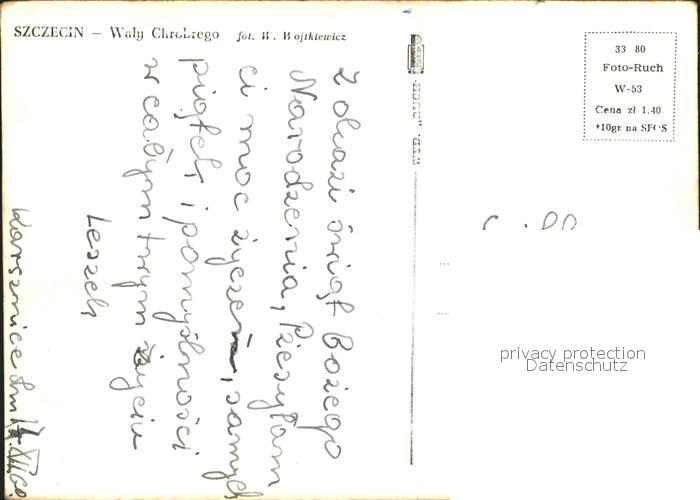 SZCZECIN – Wały Chrobrego fot. W. Wojtkiewicz
Z okazi świąt Bożego
Narodzenia, Pżesyłam
ci moc życzeń, samych
piątek i pomyślności
w całym twym życiu
Leszek
Karsznice dn 17.XII.60
"RUCH"
33 80
Foto-Ruch
W-53
Cena zł 1.40
+10gr na SFOS
privacy protection
Datenschutz